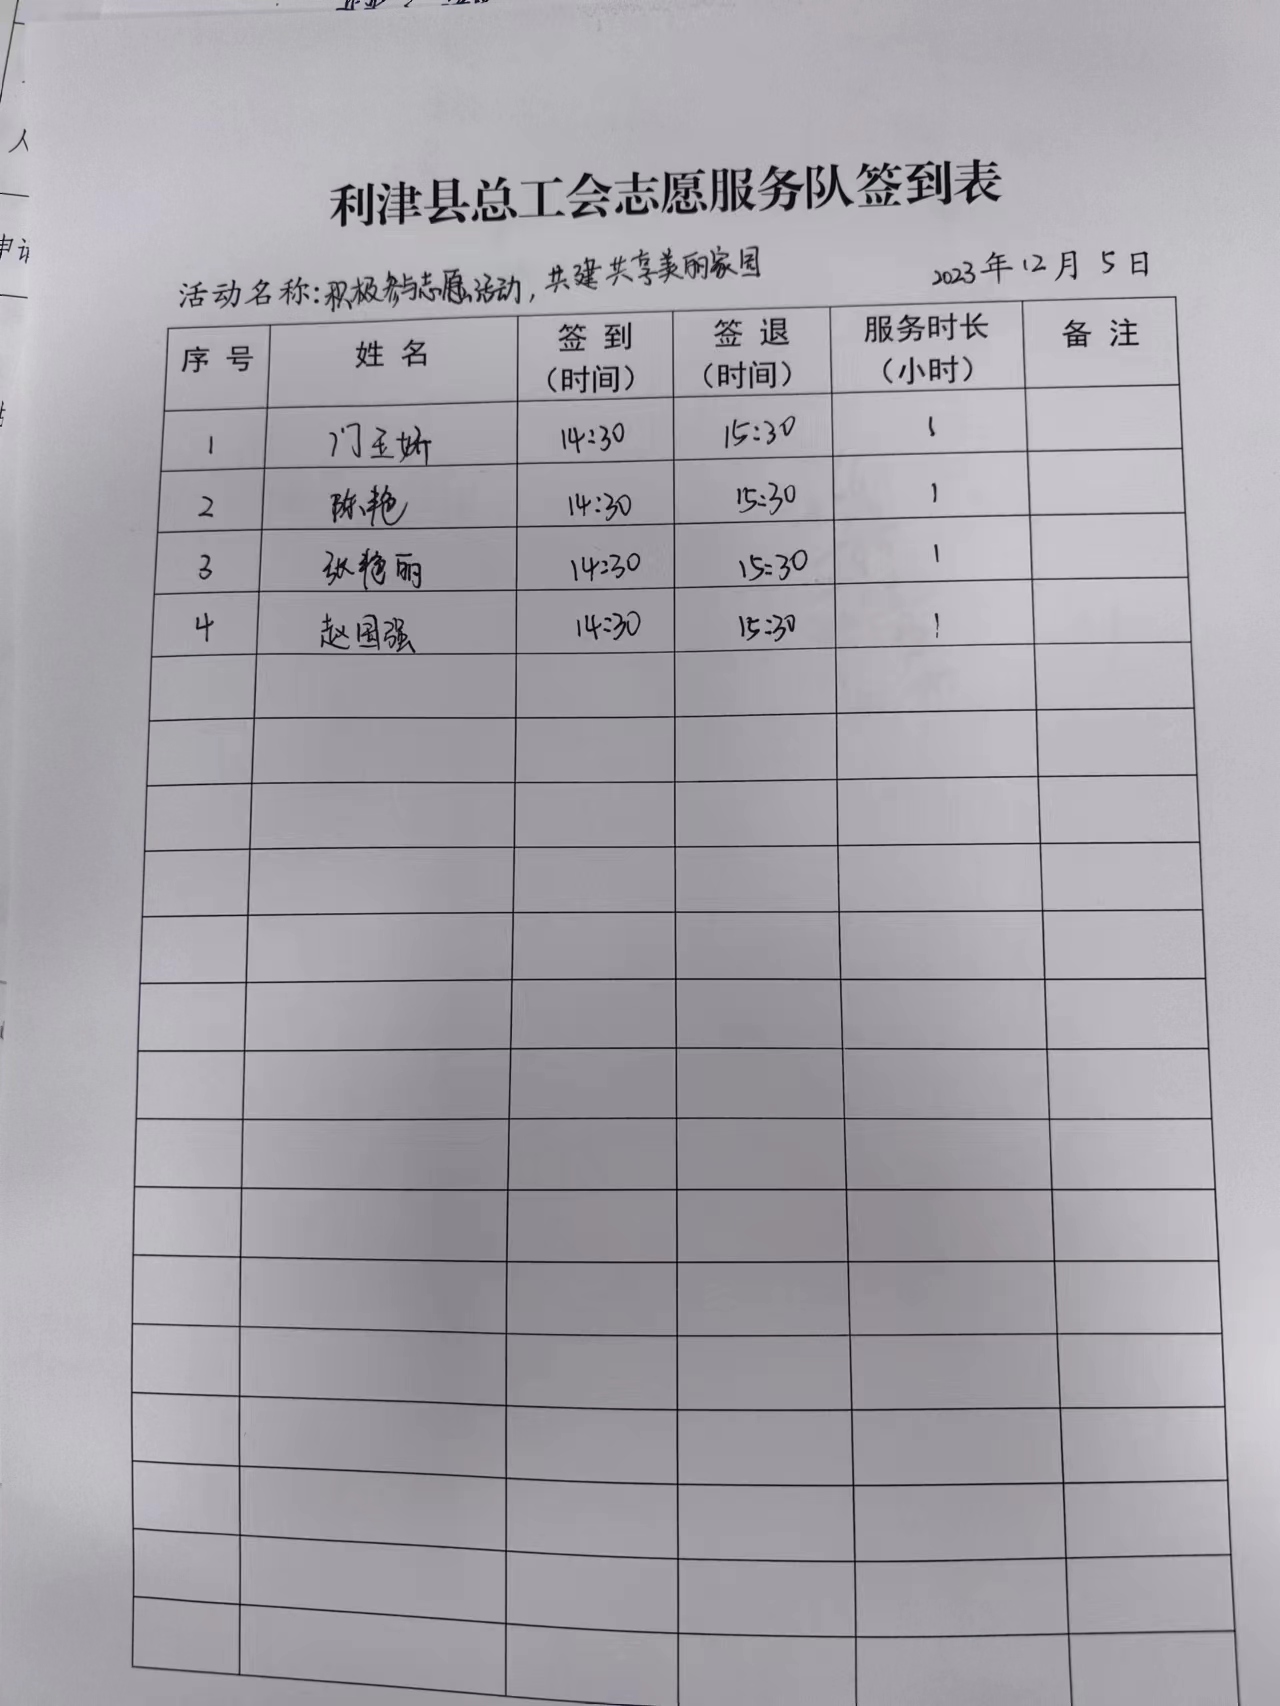 利津县总工会志愿服务队签到表
活动名称:积极参与志愿活动,共建共享美丽家园 2023年12月5日
序号 姓名 签到(时间) 签退(时间) 服务时长(小时) 备注
1 门玉娇 14:30 15:30 1
2 陈艳 14:30 15:30 1
3 张艳丽 14:30 15:30 1
4 赵国强 14:30 15:30 1
人